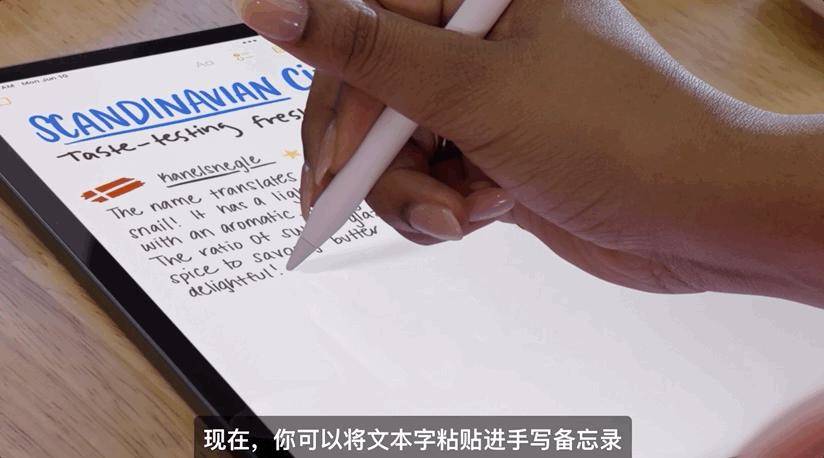 AM Mon Jun 10
Aa
SCANDINAVIAN
Taste-testing
kanelsnegle
The name translates
snail! It has a
with an aromatic
The ratio of
spice to butter
delightful!
现在，你可以将文本字粘贴进手写备忘录